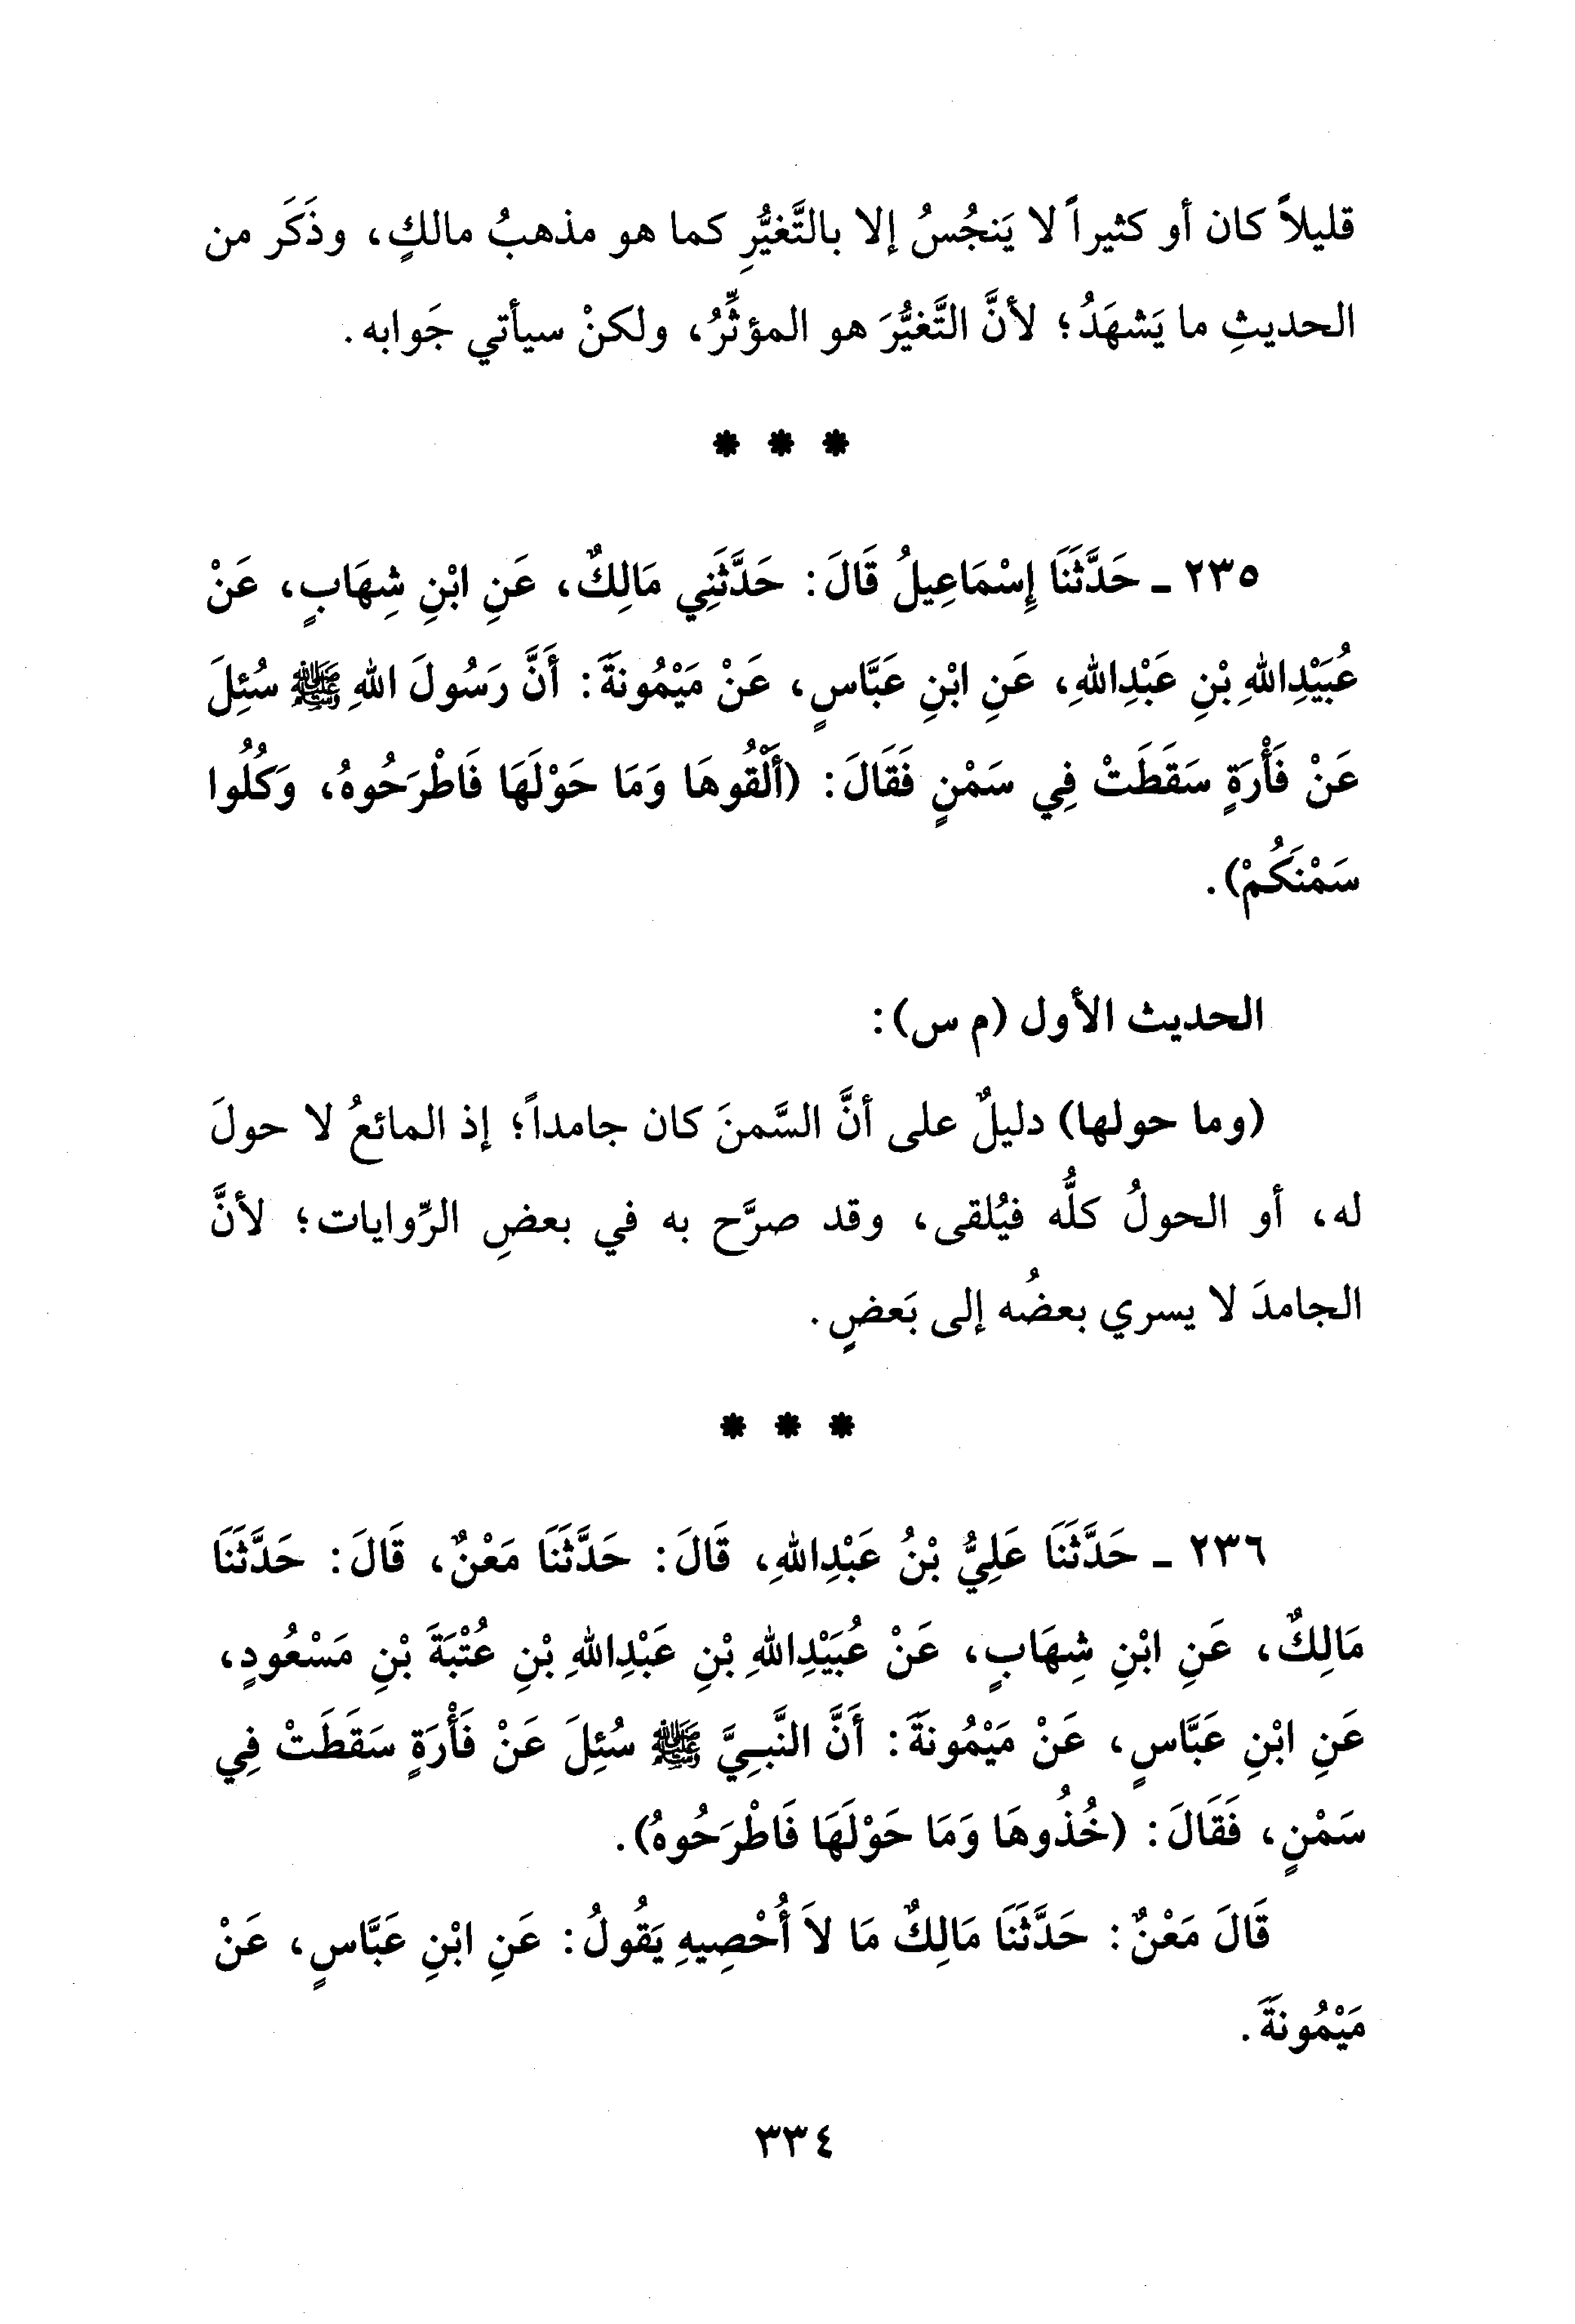 قليلاً كان أو كثيراً لا يَنجُسُ إلا بالتَّغيُّرِ كما هو مذهبُ مالكٍ، وذَكَر من
الحديثِ ما يَشهَدُ؛ لأنَّ التَّغيُّرَ هو المؤثِّرُ، ولكنْ سيأتي جَوابه.
* * *
٢٣٥ ـ حَدَّثَنَا إِسْمَاعِيلُ قَالَ: حَدَّثَنِي مَالِكٌ، عَنِ ابْنِ شِهَابٍ، عَنْ
عُبَيْدِاللهِ بْنِ عَبْدِاللهِ، عَنِ ابْنِ عَبَّاسٍ، عَنْ مَيْمُونَةَ: أَنَّ رَسُولَ اللهِ ﷺ سُئِلَ
عَنْ فَأْرَةٍ سَقَطَتْ فِي سَمْنٍ فَقَالَ: (أَلْقُوهَا وَمَا حَوْلَهَا فَاطْرَحُوهُ، وَكُلُوا
سَمْنَكُمْ).
الحديث الأول (م س):
(وما حولها) دليلٌ على أنَّ السَّمنَ كان جامداً؛ إذ المائعُ لا حولَ
له، أو الحولُ كلُّه فيُلقى، وقد صرَّح به في بعضِ الرِّوايات؛ لأنَّ
الجامدَ لا يسري بعضُه إلى بَعضٍ.
* * *
٢٣٦ ـ حَدَّثَنَا عَلِيُّ بْنُ عَبْدِاللهِ، قَالَ: حَدَّثَنَا مَعْنٌ، قَالَ: حَدَّثَنَا
مَالِكٌ، عَنِ ابْنِ شِهَابٍ، عَنْ عُبَيْدِاللهِ بْنِ عَبْدِاللهِ بْنِ عُتْبَةَ بْنِ مَسْعُودٍ،
عَنِ ابْنِ عَبَّاسٍ، عَنْ مَيْمُونَةَ: أَنَّ النَّبِيَّ ﷺ سُئِلَ عَنْ فَأْرَةٍ سَقَطَتْ فِي
سَمْنٍ، فَقَالَ: (خُذُوهَا وَمَا حَوْلَهَا فَاطْرَحُوهُ).
قَالَ مَعْنٌ: حَدَّثَنَا مَالِكٌ مَا لاَ أُحْصِيهِ يَقُولُ: عَنِ ابْنِ عَبَّاسٍ، عَنْ
مَيْمُونَةَ.
٣٣٤